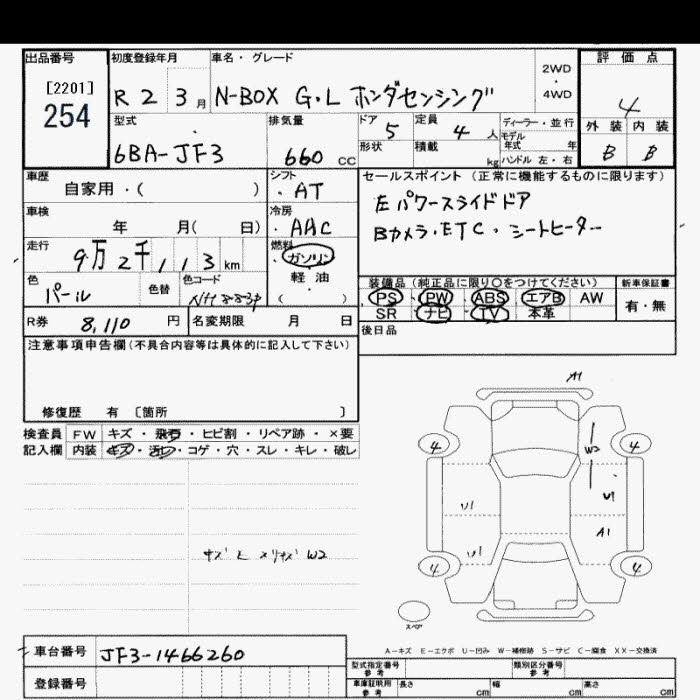 出品番号 初度登録年月 車名・グレード 評価点
[2201]
254
R2 3月 N-BOX G・L ホンダセンシング 2WD・4WD
4
型式 排気量 ドア 定員 ディーラー・並行 外装 内装
6BA-JF3 660cc 5 4人 モデル年式 年 B B
形状 積載 kg ハンドル 左・右
車歴 シフト セールスポイント(正常に機能するものに限ります)
自家用・( ) ・AT 左パワースライドドア
車検 冷房
年 月(日) ・AAC Bカメラ・ETC・シートヒーター
走行 燃料
9万2千113km ガソリン・軽油・( )
色 色替 色コード 装備品(純正品に限り〇をつけてください) 新車保証書
パール NH883P PS PW ABS エアB AW 有・無
R券 8,110円 名変期限 月 日 SR ナビ TV 本革
注意事項申告欄(不具合内容等は具体的に記入して下さい) 後日品
修復歴 有 〔箇所 〕
検査員 FW キズ・飛石・ヒビ割・リペア跡・×要
記入欄 内装 キズ・汚レ・コゲ・穴・スレ・キレ・破レ
A1
4 4
W2
U1 U1
A1
U1
4 4
W2
スペア
A-キズ E-エクボ U-凹み W-補修跡 S-サビ C-腐食 XX-交換済
車台番号 JF3-1466260
登録番号
型式指定番号 参考 類別区分番号 参考
車庫証明用 参考 長さ cm 幅 cm 高さ cm